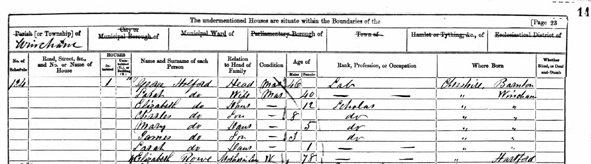 The undermentioned Houses are situate within the Boundaries of the [Page 23 11
Parish [or Township] of City or Municipal Borough of Municipal Ward of Parliamentary Borough of Town of Hamlet or Tything, &c., of Ecclesiastical District of
Wincham
No. of Schedule Road, Street, &c., and No. or Name of House HOUSES Name and Surname of each Person Relation to Head of Family Condition Age of Rank, Profession, or Occupation Where Born Whether Blind, or Deaf-and-Dumb
Males Females
124 1 Holford Head Mar 46 Lab Cheshire Barnton
Sarah do Wife Mar 40 — — " Wincham
Elizabeth do Daur 12 Scholar " "
Charles do Son 8 do " "
Mary do Daur 5 do " "
James do Son 3 do " "
Sarah do Daur 1 — — " "
Elizabeth Rowe W 78 — — " Hartford